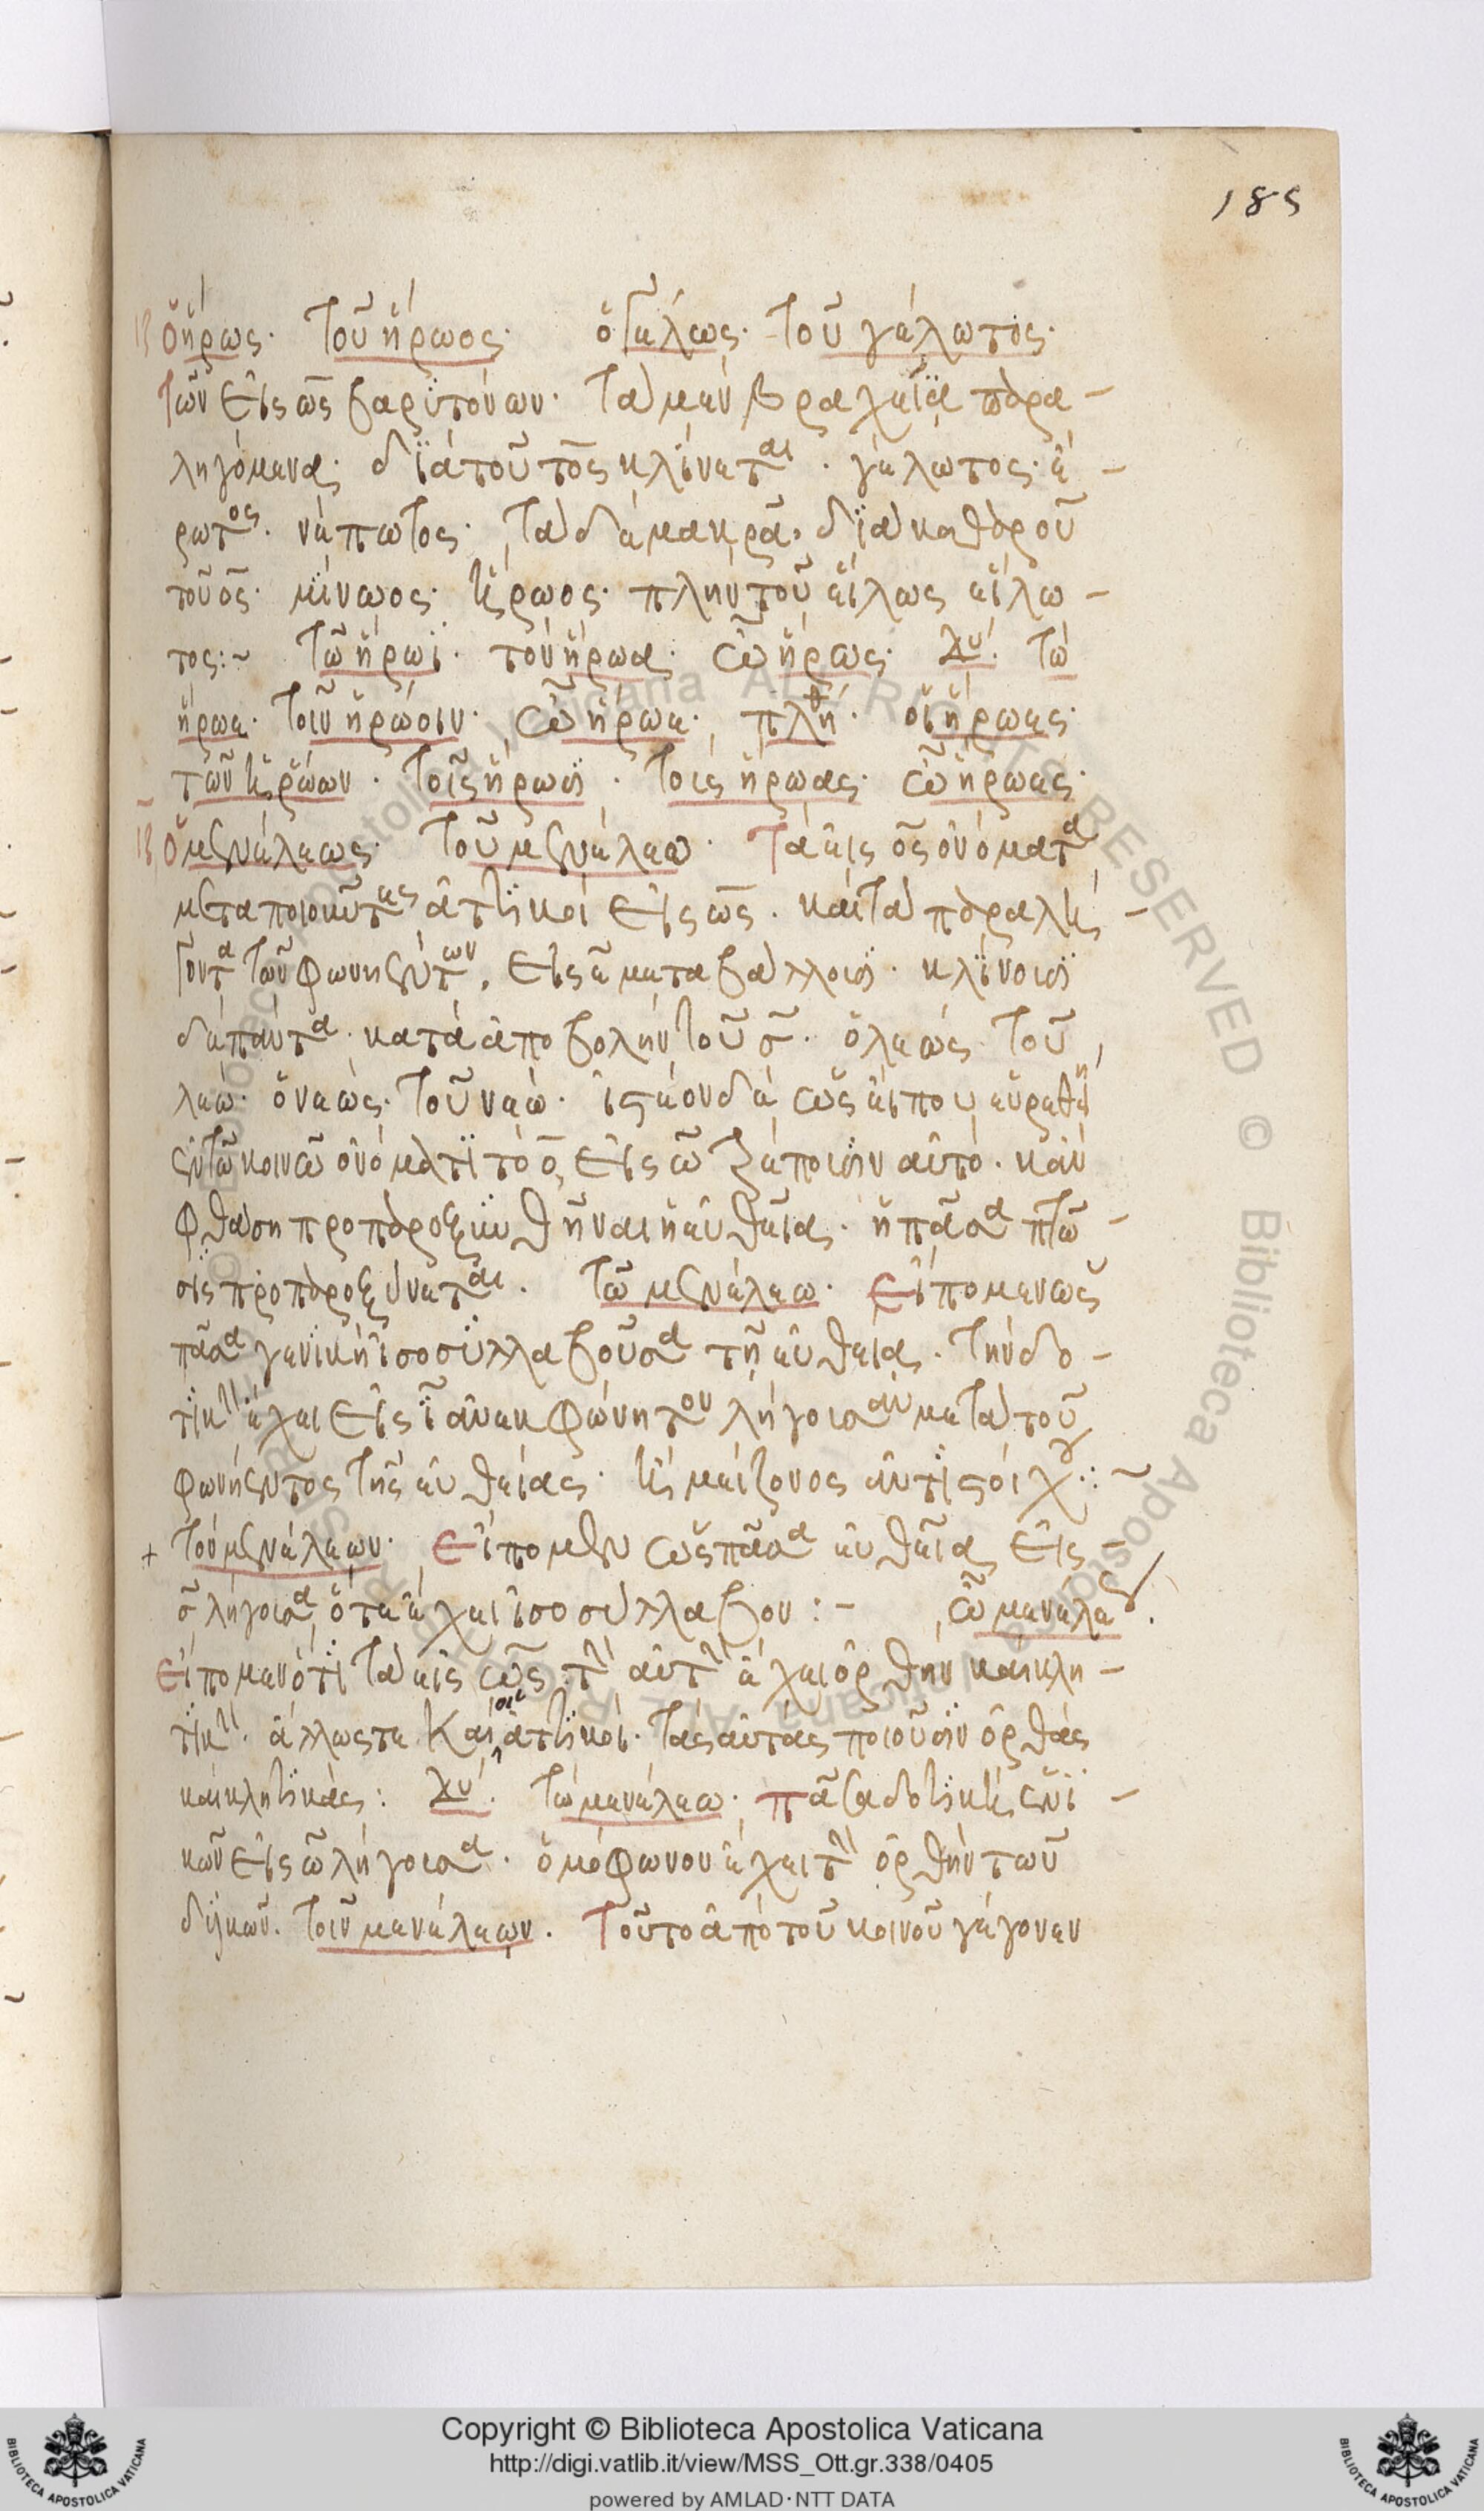 185
ὁ ἥρως· τοῦ ἥρωος· ὁ γέλως· τοῦ γέλωτος·
τῶν εἰς ως βαρυτόνων· τὰ μὲν βραχεῖα παρα-
ληγόμενα· διὰ τοῦ τος κλίνεται· γέλωτος· ἔ-
ρωτος· νέπωτος· τὰ δὲ μακρᾶ, διὰ καθαροῦ
τοῦ ος· μίνωος· ἥρωος· πλὴν τοῦ εἵλως εἵλω-
τος:~ τῶ ἥρωϊ· τὸν ἥρωα· ὦ ἥρως· δυ. τὼ
ἥρωε· τοῖν ἡρώοιν· ὦ ἥρωε· πλη. οἱ ἥρωες·
τῶν ἡρώων· τοῖς ἥρωσι· τοὺς ἥρωας· ὦ ἥρωες·
ὁ μενέλεως· τοῦ μενέλεω· τὰ εἰς ος ὀνόματα
μεταποιοῦντες ἀττικοὶ εἰς ως· καὶ τὰ παραλή
γοντα τῶν φωνηέντων, εἰς ε μεταβάλλουσι· κλίνουσι
δὲ πάντα κατὰ ἀποβολὴν τοῦ σ· ὁ λεώς τοῦ
λεώ· ὁ νεώς· τοῦ νεώ· ἰστέον δὲ ὡς εἴπου εὑρεθῆ
ἐν τῶ κοινῶ ὀνόματι τὸ ο, εἰς ω τρέπουσιν αὐτό· κἂν
φθάση προπαροξυνθῆναι ἡ εὐθεῖα· ἡ πᾶσα πτῶ-
σις προπαροξύνεται. τῶ μενέλεω· εἴπομεν ὡς
πᾶσα γενικὴ ἰσοσυλλαβοῦσα τῆ εὐθεία· τὴν δο-
τικὴν ἔχει εἰς ι ἀνεκφώνητον λήγουσαν μετὰ τοῦ
φωνήεντος τῆς εὐθείας· ἢ μείζονος ἀντιστοίχου:~
τὸν μενέλεων· εἴπομεν ὡς πᾶσα εὐθεῖα εἰς
σ λήγουσα, ὅτε ἔχει ἰσοσύλλαβον:- ὦ μενέλαε.
εἴπομεν ὅτι τὰ εἰς ως τὴν αὐτὴν ἔχει ὀρθὴν καὶ κλη-
τικήν· ἄλλως τε καὶ οἱ ἀττικοὶ· τὰς αὐτὰς ποιοῦσιν ὀρθὰς
καὶ κλητικάς: δυ. τὼ μενέλεω· πᾶσα δοτικὴ ἑνι-
κῶν εἰς ω λήγουσα· ὁμόφωνον ἔχει τὴν ὀρθὴν τῶν
δυϊκῶν. τοῖν μενέλεων. τοῦτο ἀπὸ τοῦ κοινοῦ γέγονεν
Copyright © Biblioteca Apostolica Vaticana
http://digi.vatlib.it/view/MSS_Ott.gr.338/0405
powered by AMLAD·NTT DATA